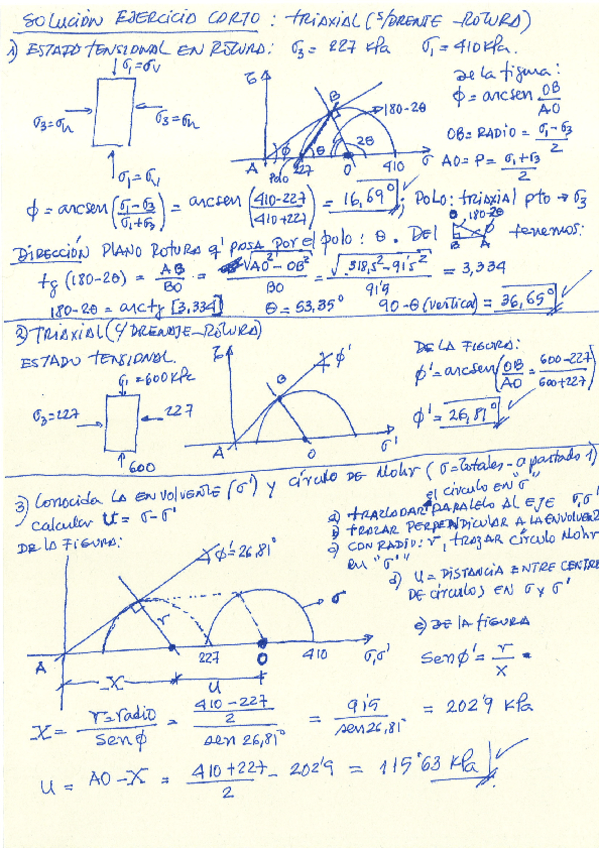 SOLUCIÓN EJERCICIO CORTO : TRIAXIAL (S/DRENTE - ROTURA)
1) ESTADO TENSIONAL EN ROTURA: σ3 = 227 kPa σ1 = 410 kPa.
σ1 = σv
σ3 = σh
σ3 = σh
σ1 = σv
τ
B
180-2θ
φ
θ
2θ
A
Polo
227
O
410
σ
De la figura:
φ = arcsen OB/AO
OB = RADIO = (σ1-σ3)/2
AO = P = (σ1+σ3)/2
φ = arcsen (σ1-σ3/σ1+σ3) = arcsen (410-227/410+227) = 16,69° ; POLO: TRIAXIAL pto → σ3
DIRECCIÓN PLANO ROTURA q' pasa por el polo : θ . DEL tenemos:
O 180-2θ
B A
tg (180-2θ) = AB/BO = √(AO² - OB²)/BO = √(318,5² - 91'5²)/91'5 = 3,334
180-2θ = arctg [3,334] θ = 53,35° 90-θ (vertical) = 36,65°
2) TRIAXIAL (C/DRENAJE-ROTURA)
ESTADO TENSIONAL.
σ1 = 600 kPa
σ3 = 227
227
600
τ
B
φ'
A
O
σ'
DE LA FIGURA:
φ' = arcsen (OB/AO = 600-227/600+227)
φ' = 26,81°
3) Conocida LA ENVOLVENTE (σ') y círculo DE Mohr (σ = Totales - apartado 1)
calcular u = σ - σ'
DE LA FIGURA:
el círculo en "σ"
a) TRASLADAR PARALELO AL EJE σ, σ'
b) TRAZAR PERPENDICULAR A LA ENVOLVENTE
c) CON RADIO: r, TRAZAR CÍRCULO Mohr
en "σ'"
d) U = DISTANCIA ENTRE CENTROS
DE CÍRCULOS EN σ y σ'
φ' = 26,81°
r
σ
A
227
O
410
σ, σ'
X
u
e) DE LA FIGURA
sen φ' = r/x
X = r = radio/sen φ = (410-227/2)/sen 26,81° = 91'5/sen 26,81° = 202'9 kPa
U = AO - X = 410+227/2 - 202'9 = 115'63 kPa